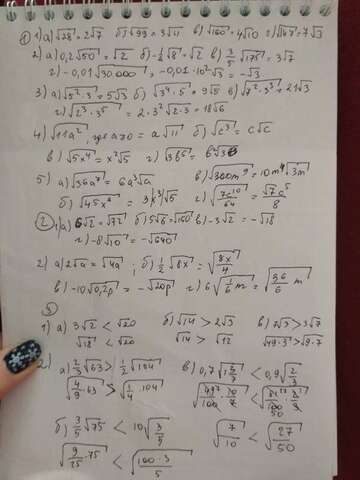 ① 1) а) √28 = 2√7 б) √99 = 3√11 в) √160 = 4√10 г) √147 = 7√3
2) а) 0,2√50 = √2 б) -½√8 = √2 в) 3/5 √175 = 3√7
г) -0,01√30.000 = -0,01·10²√3 = -√3
3) а) √5²·3 = 5√3 б) √3⁴·5 = 9√5 в) √7²·3³ = 21√3
г) √2³·3⁵ = 2·3²√2·3 = 18√6
4) а) √11a², где a≥0 = a√11 б) √c³ = c√c
в) √5x⁴ = x²√5 г) √3b⁶
5) а) √36a⁷ = 6a³√a в) √300m⁹ = 10m⁴√3m
б) √45x⁶ = г) √7c¹⁰/64 = √7c⁵/8
② 1) а) 6√2 = √72 б) 5√6 = √150 в) -3√2 = -√18
г) -8√10 = -√640
2) а) 2√a = √4a б) ½√8x = √8x/4
в) -10√0,2p = -√20p г) 6√⅙m = √36/6 m
③
1) а) 3√2 < √20 б) √14 > 2√3 в) 7√3 > 3√7
√18 < √20 √14 > √12 √49·3 > √9·7
2) а) ⅔√63 > ½√104 в) 0,7√1 3/7 < 0,9√2/3
√4/9·63 > √1/4·104
б) 3/5 √75 < 10√3/5 √7/10 < √27/50
√9/25·75 < √100·3/5